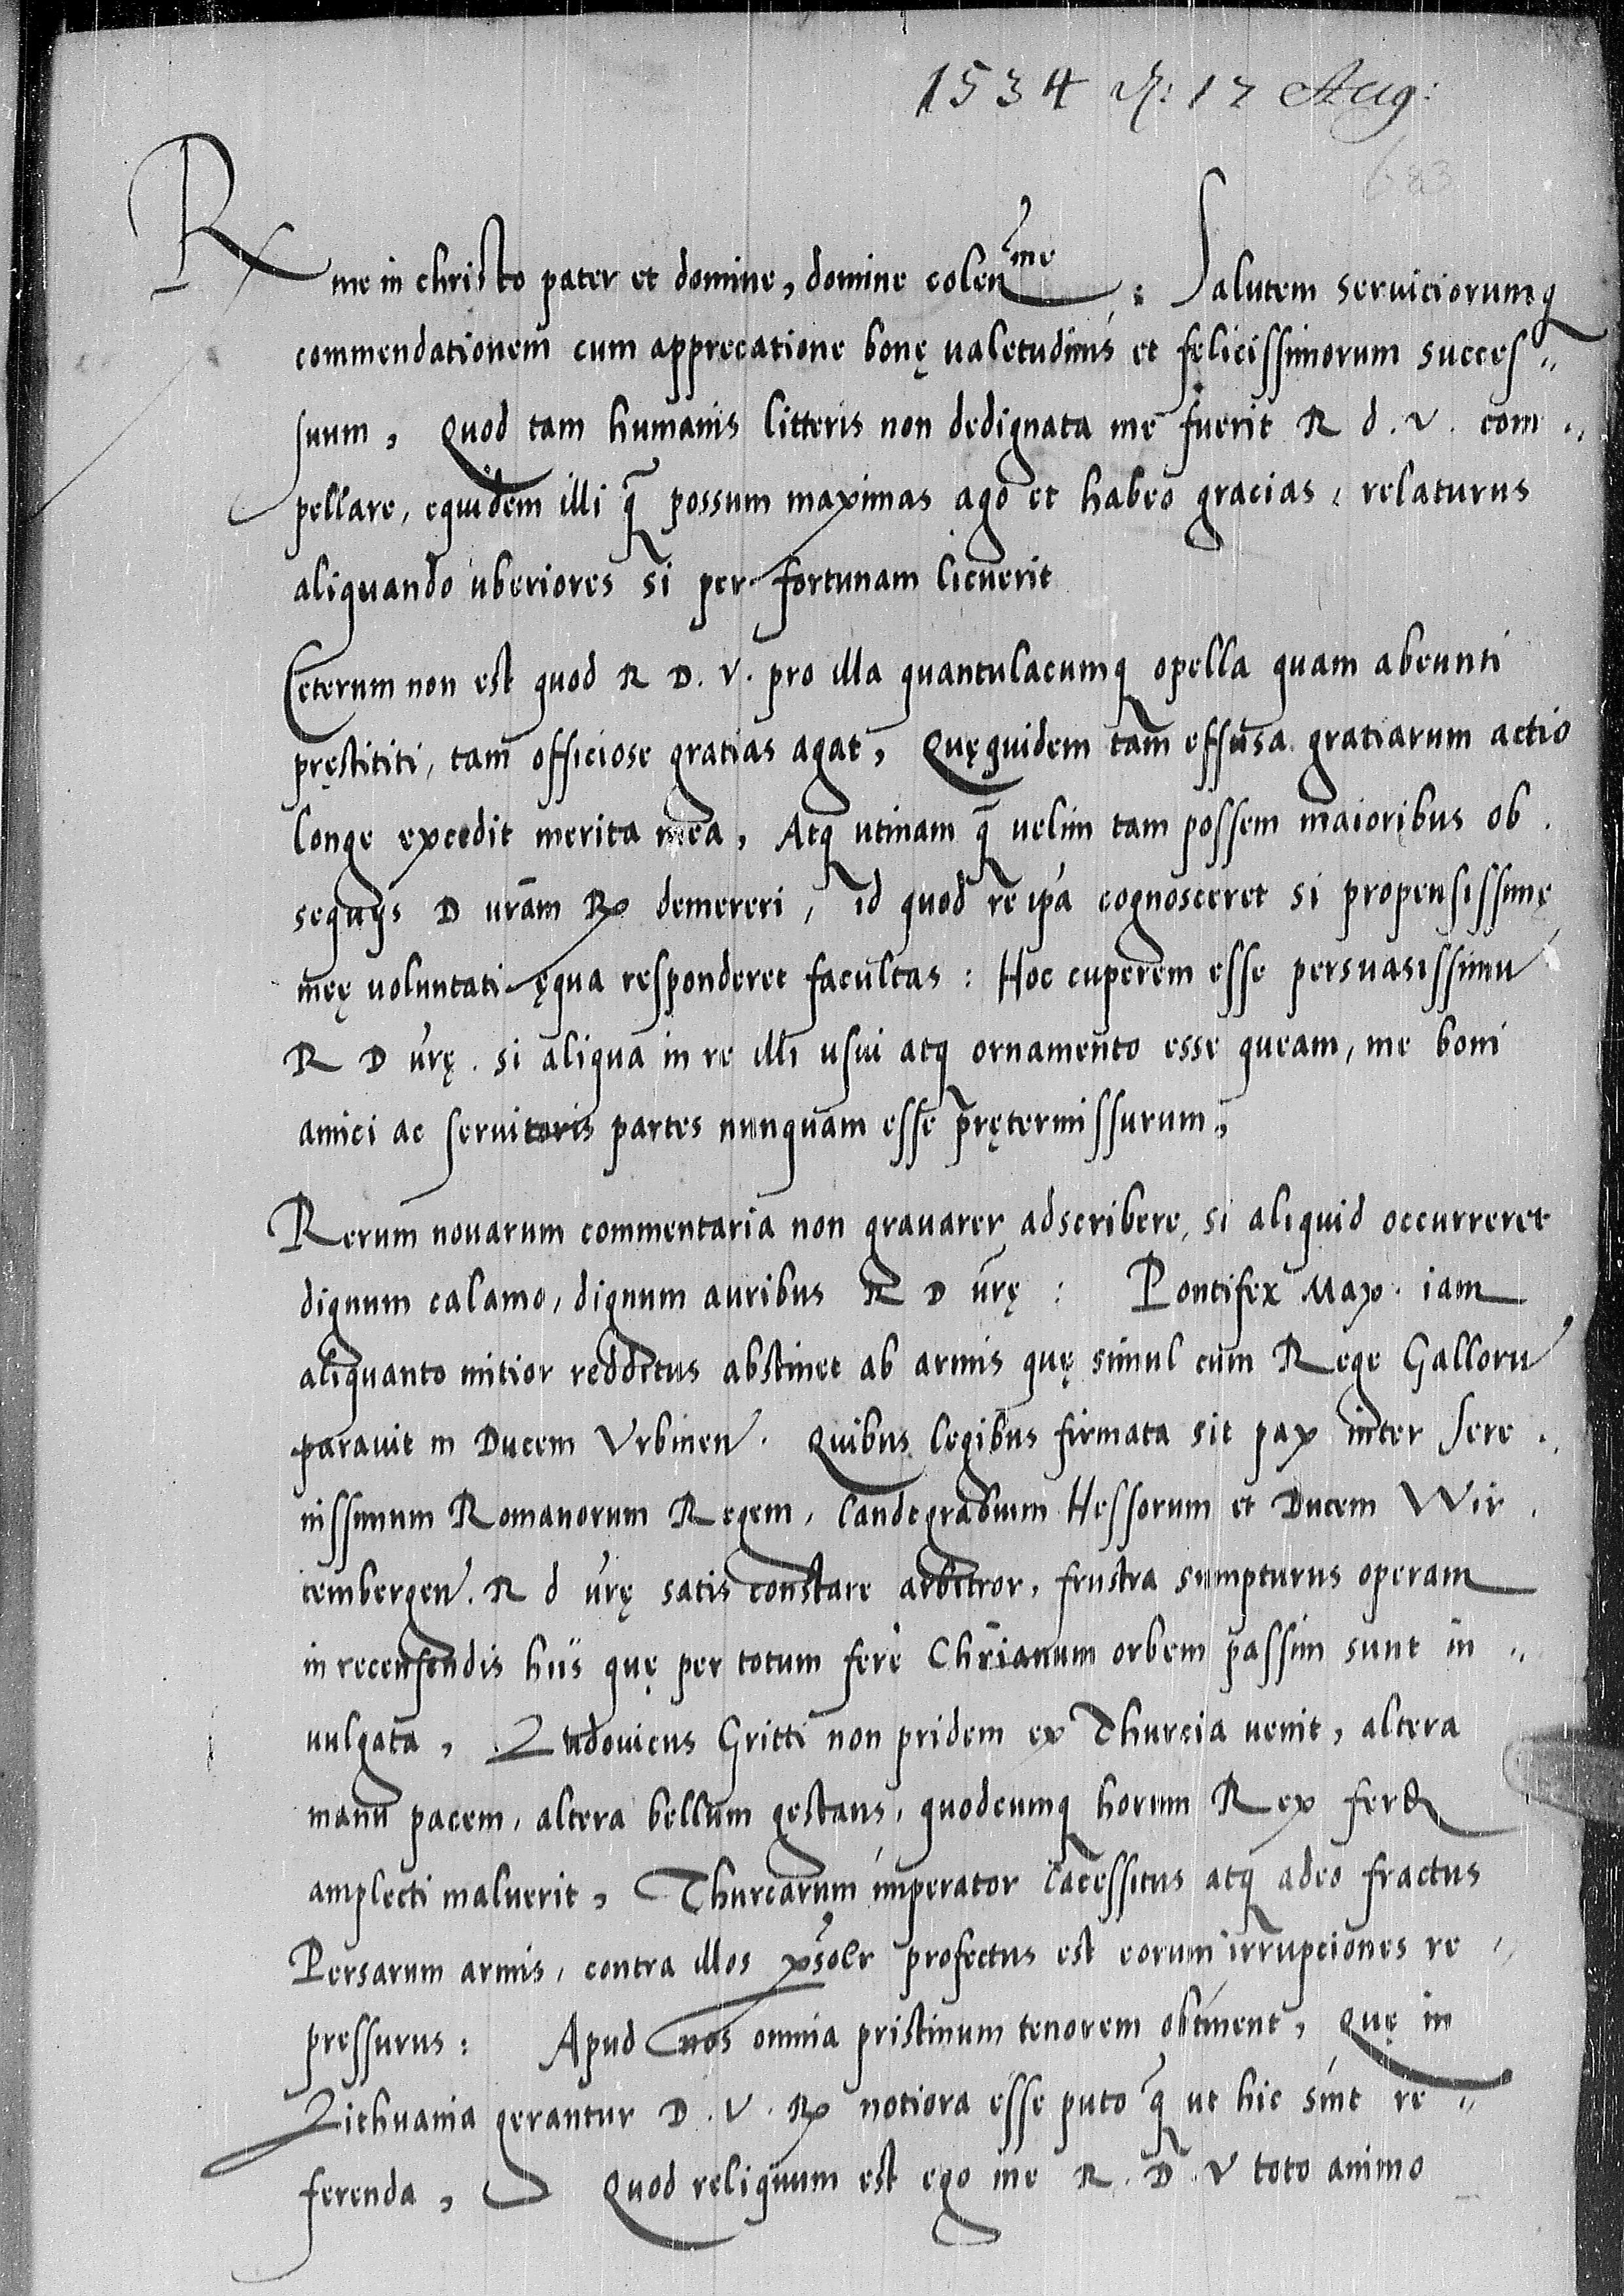 1534 d: 17 Aug:
683
Rme in christo pater et domine, domine colenme : Salutem seruiciorumq
commendationem cum apprecatione bonę ualetudinis et felicissimorum succes„
suum, Quod tam humanis litteris non dedignata me fuerit R d. V. com„
pellare, equidem illi q̃ possum maximas ago et habeo gracias, relaturus
aliquando uberiores si per fortunam licuerit
Ceterum non est quod R D. V. pro illa quantulacumq opella quam abeunti
pręstititi, tam officiose gratias agat, Quęquidem tam effusa gratiarum actio
longe excedit merita mea, Atq utinam q̃ uelim tam possem maioribus ob.
sequijs D vrãm R demereri, id quod re ipa cognosceret si propensissimę
meę uoluntati ęqua responderet facultas: Hoc cuperem esse persuasissimu
R D vrę. si aliqua in re illi usui atq ornamento esse queam, me boni
amici ac seruitoris partes nunquam esse prętermissurum,
Rerum nouarum commentaria non grauarer adscribere, si aliquid occurreret
dignum calamo, dignum auribus R D vrę: Pontifex Max. iam
aliquanto mitior redditus abstinet ab armis quę simul cum Rege Galloru
parauit in Ducem Vrbinen. Quibus legibus firmata sit pax inter Sere„
nissimum Romanorum Regem, landtgrabium Hessorum et Ducem Wir.
tembergen. R d vrę satis constare arbitror, frustra sumpturus operam
in recensendis hiis quę per totum fere Chrianum orbem passim sunt in„
uulgata, Ludouicus Gritti non pridem ex Thurcia uenit, altera
manu pacem, altera bellum gestans, quodcumq horum Rex ferd
amplecti maluerit, Thurcarum imperator lacessitus atq adeo fractus
Persarum armis, contra illos psolr profectus est eorum irrupciones re„
pressurus: Apud nos omnia pristinum tenorem obtinent, Quę in
Lithuania gerantur D. V. R notiora esse puto q̃ ut hic sint re„
ferenda, Quod reliquum est ego me R. D. V toto animo